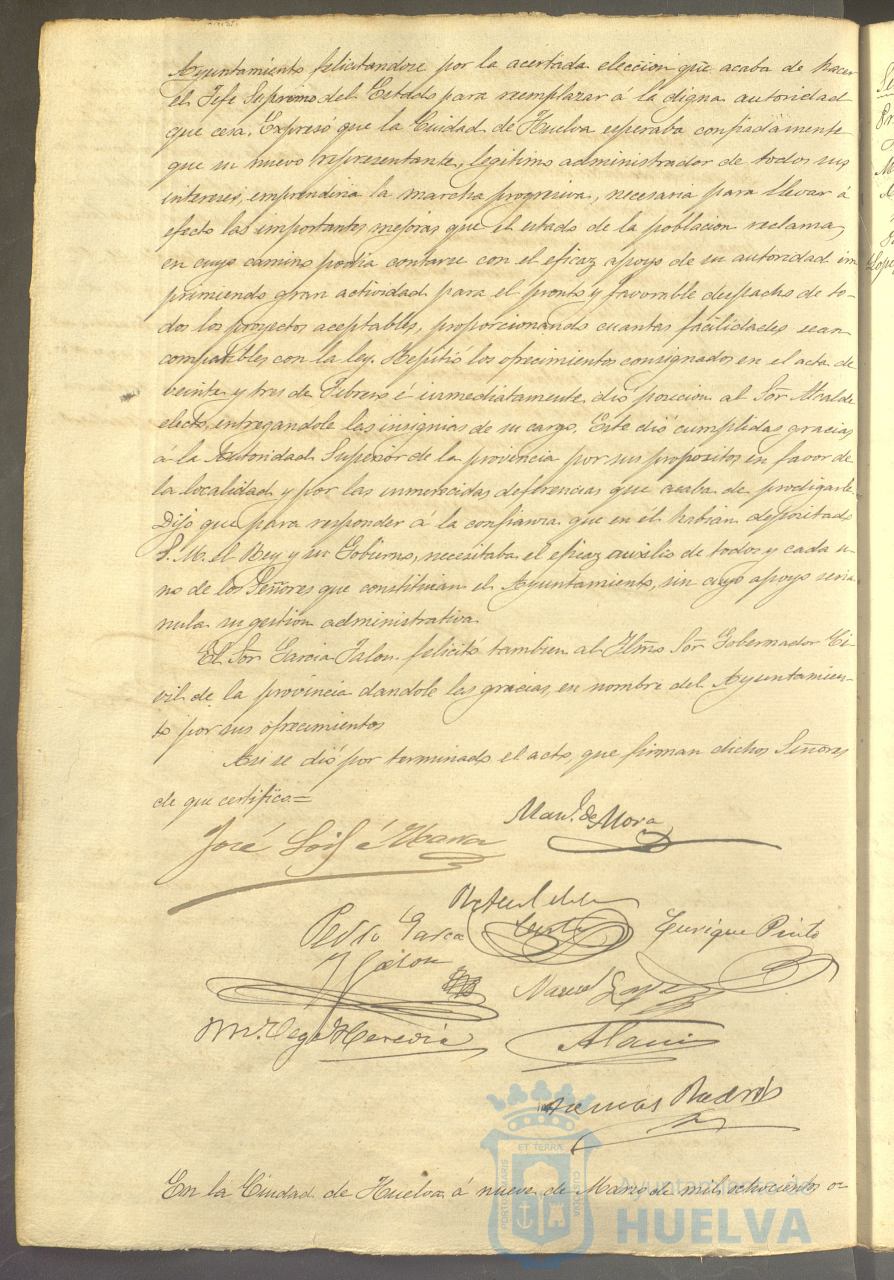 Ayuntamiento felicitandose por la acertada eleccion que acaba de hacer
el Jefe Supremo del Estado para reemplazar á la digna autoridad
que cesa. Expresó que la Ciudad de Huelva esperaba confiadamente
que su nuevo representante, legitimo administrador de todos sus
intereses, emprendiria la marcha progresiva, necesaria para llevar á
efecto las importantes mejoras que el estado de la poblacion reclama,
en cuyo camino podia contarse con el eficaz apoyo de su autoridad im
primiendo gran actividad para el pronto y favorable despacho de to-
dos los proyectos aceptables, proporcionando cuantas facilidades sean
compatibles con la ley. Repitió los ofrecimientos consignados en el acta de
veinte y tres de Febrero é inmediatamente dió posecion al Sor Alcalde
electo, entregandole las insignias de su cargo. Este dió cumplidas gracias
á la Autoridad Superior de la provincia por sus propositos en favor de
la localidad y por las inmerecidas deferencias que acaba de prodigarle
Dijo que para responder á la confianza que en él habian depositado
S. M. el Rey y su Gobierno, necesitaba el eficaz auxilio de todos y cada u-
no de los Señores que constituian el Ayuntamiento, sin cuyo apoyo seria
nula su gestion administrativa.
El Sor Garcia Jalon felicitó tambien al Ilmo Sor Gobernador Ci-
vil de la provincia dandole las gracias, en nombre del Ayuntamien-
to por sus ofrecimientos
Asi se dió por terminado el acto, que firman dichos Señores
de que certifico=
Manl. de Mora
José
Rafael de la
Pedro Garca
y Jalon
Enrique Pinto
Manuel Lopez
Vega Heredia
En la Ciudad de Huelva á nueve de Marzo de mil ochocientos o-
ET TERRÆ
PORTUS MARIS
CUSTODIA
Ayuntamiento de
HUELVA